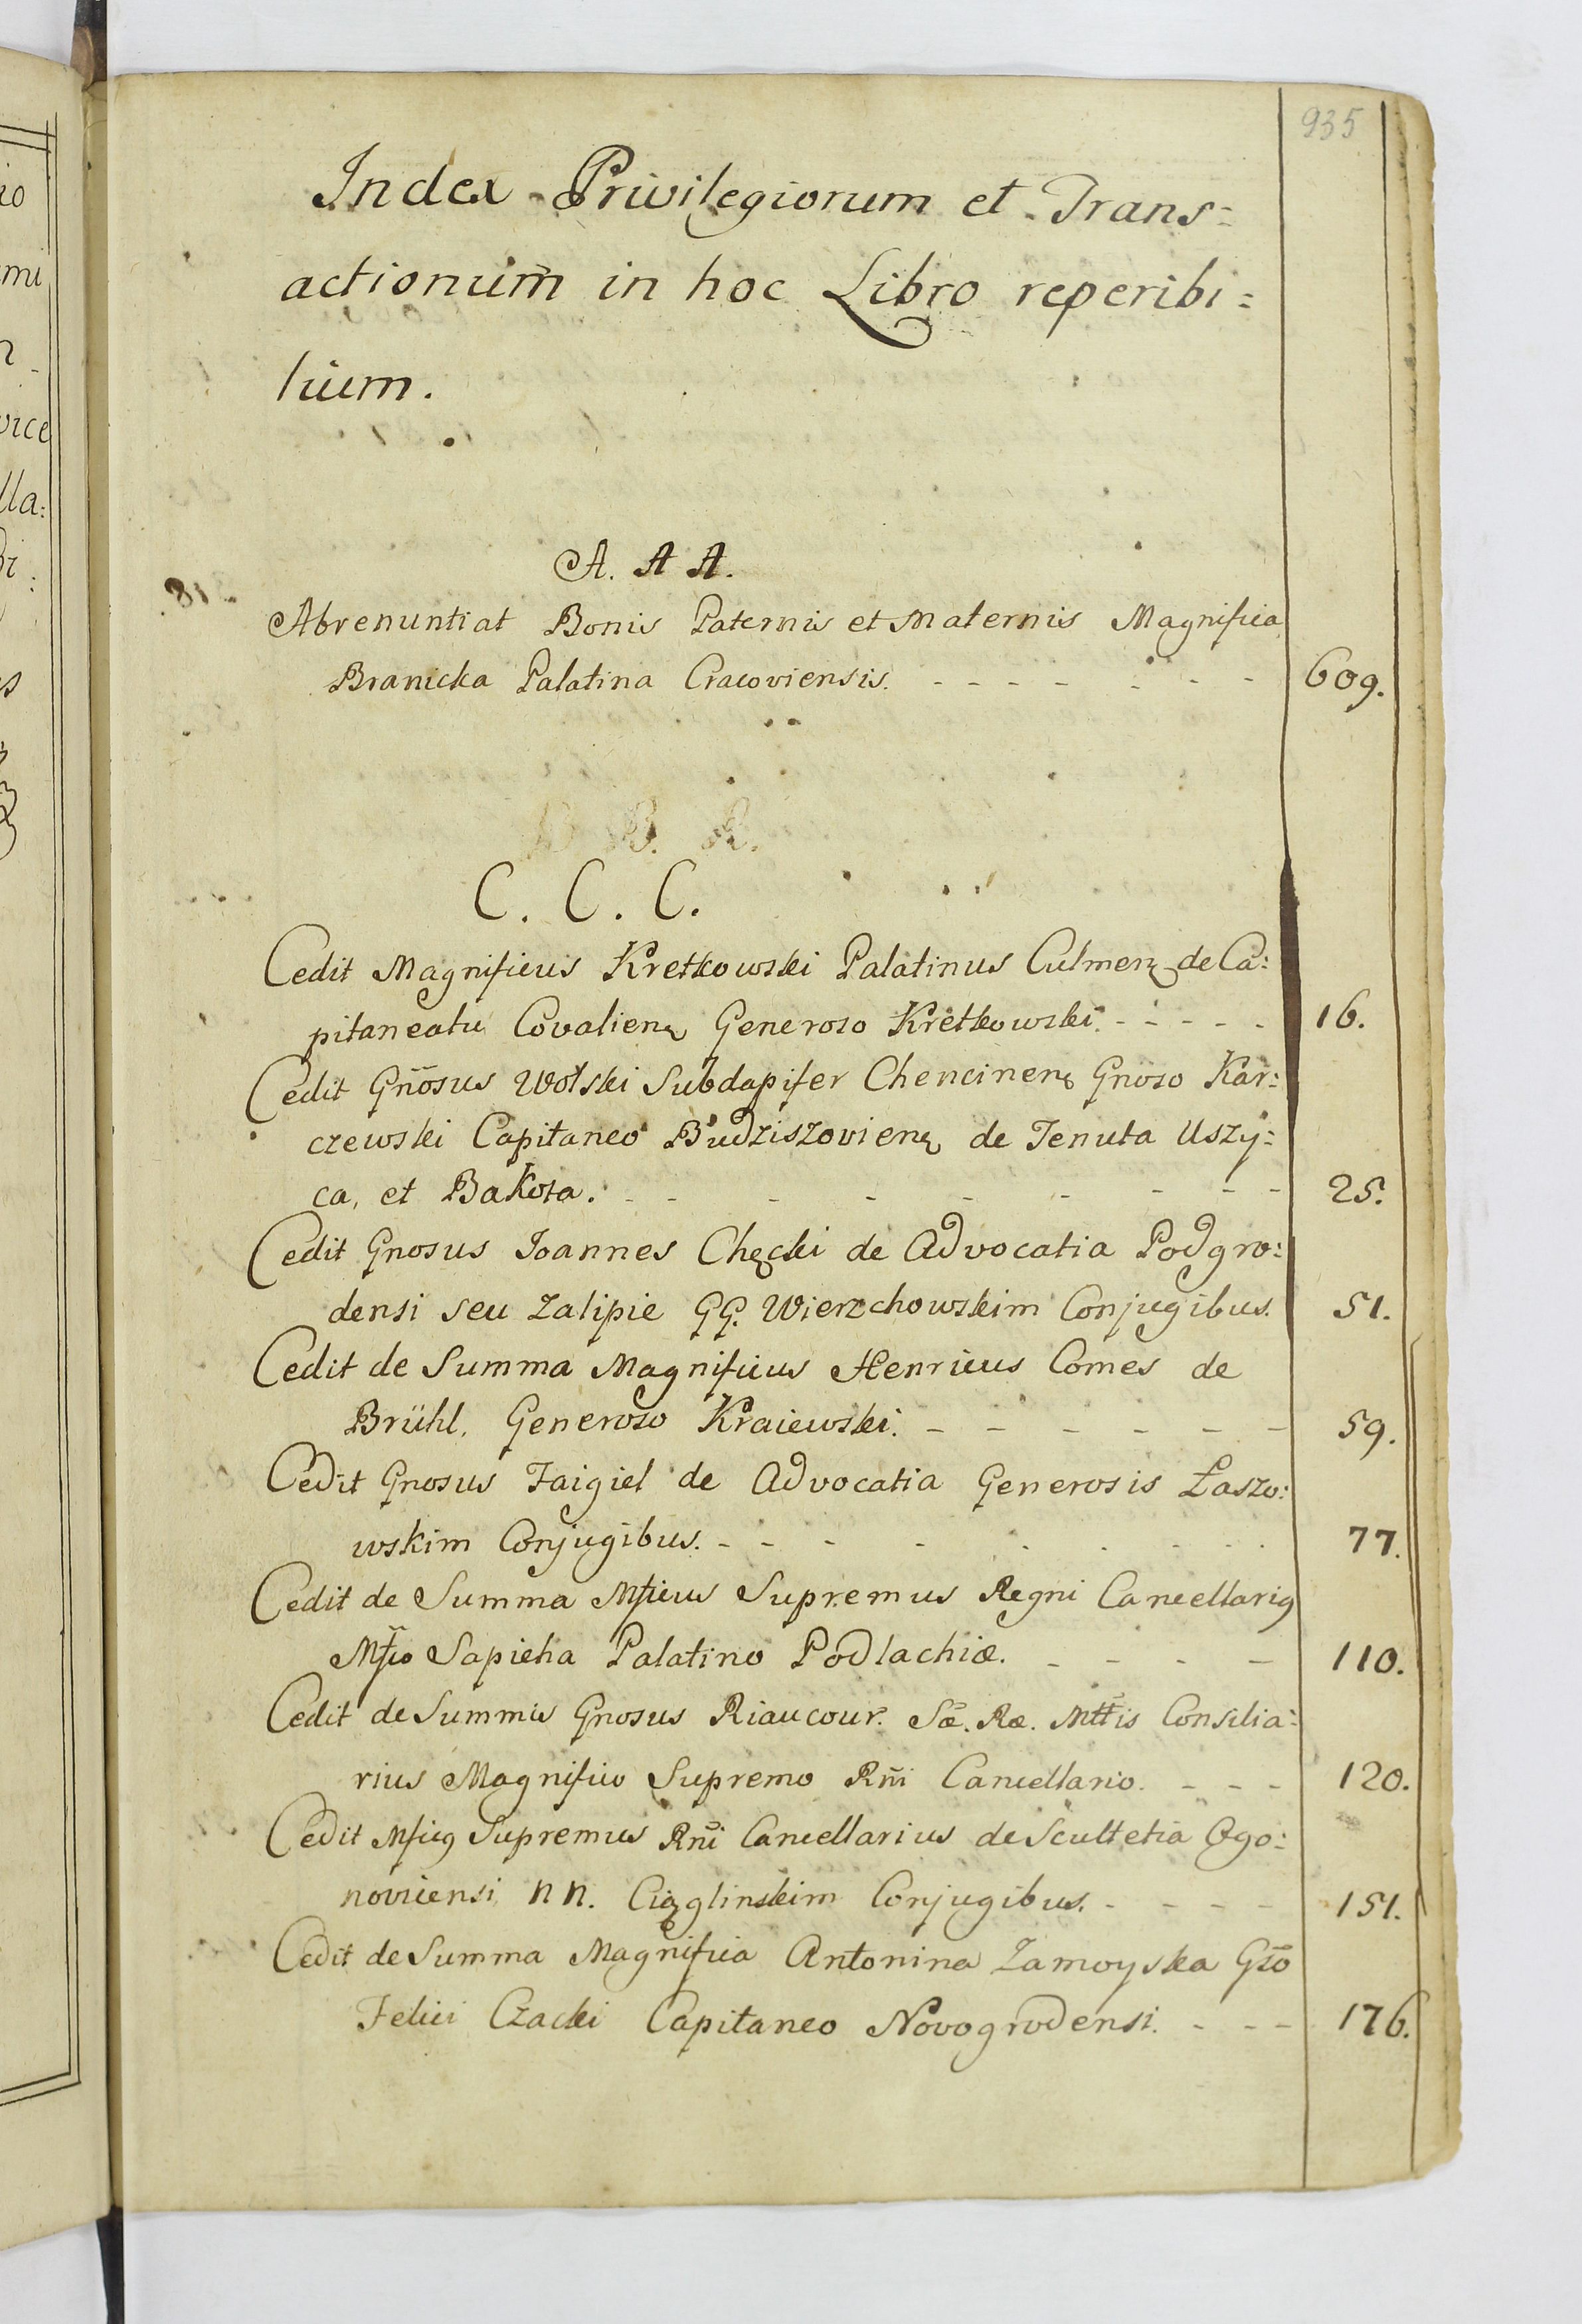 935
Index Privilegiorum et Trans=
actionum in hoc Libro reperibi=
lium.
A. A A.
Abrenuntiat Bonis Paternis et Maternis Magnifica
Branicka Palatina Cracoviensis. - - - - - - - 609.
B. B. B.
C. C. C.
Cedit Magnificus Kretkowski Palatinus Culmen̨ de Ca=
pitaneatu Covalien̨ Generoso Kretkowski. - - - - - 16.
Cedit Gñõsus Wolski Subdapifer Chencinen̨ Gnoso Kar=
czewski Capitaneo Budziszovien̨ de Tenuta Uszy=
ca, et Bakota. - - - - - - - - 25.
Cedit Gnosus Joannes Chęcki de Advocatia Podgro=
densi seu Zalipie GG. Wierzchowskim Conjugibus. 51.
Cedit de Summa Magnificus Henricus Comes de
Brühl. Generoso Kraiewski. - - - - - - 59.
Cedit Gnosus Faigiel de Advocatia Generosis Łaszo=
wskim Conjugibus. - - - - - - - - 77.
Cedit de Summa Mficus Supremus Regni Cancellarius
Mfco Sapieha Palatino Podlachiæ. - - - - 110.
Cedit de Summis Gnosus Riaucour. Sæ. Ræ. Mttis Consilia=
rius Magnifico Supremo Rñi Cancellario. - - - 120.
Cedit Mficus Supremus Rñi Cancellarius de Scultetia Ogo=
noviciensi nn. Ciąglinskim Conjugibus. - - - - 151.
Cedit de Summa Magnifica Antonina Zamoyska Gso
Felici Czacki Capitaneo Novogrodensi. - - - 176.